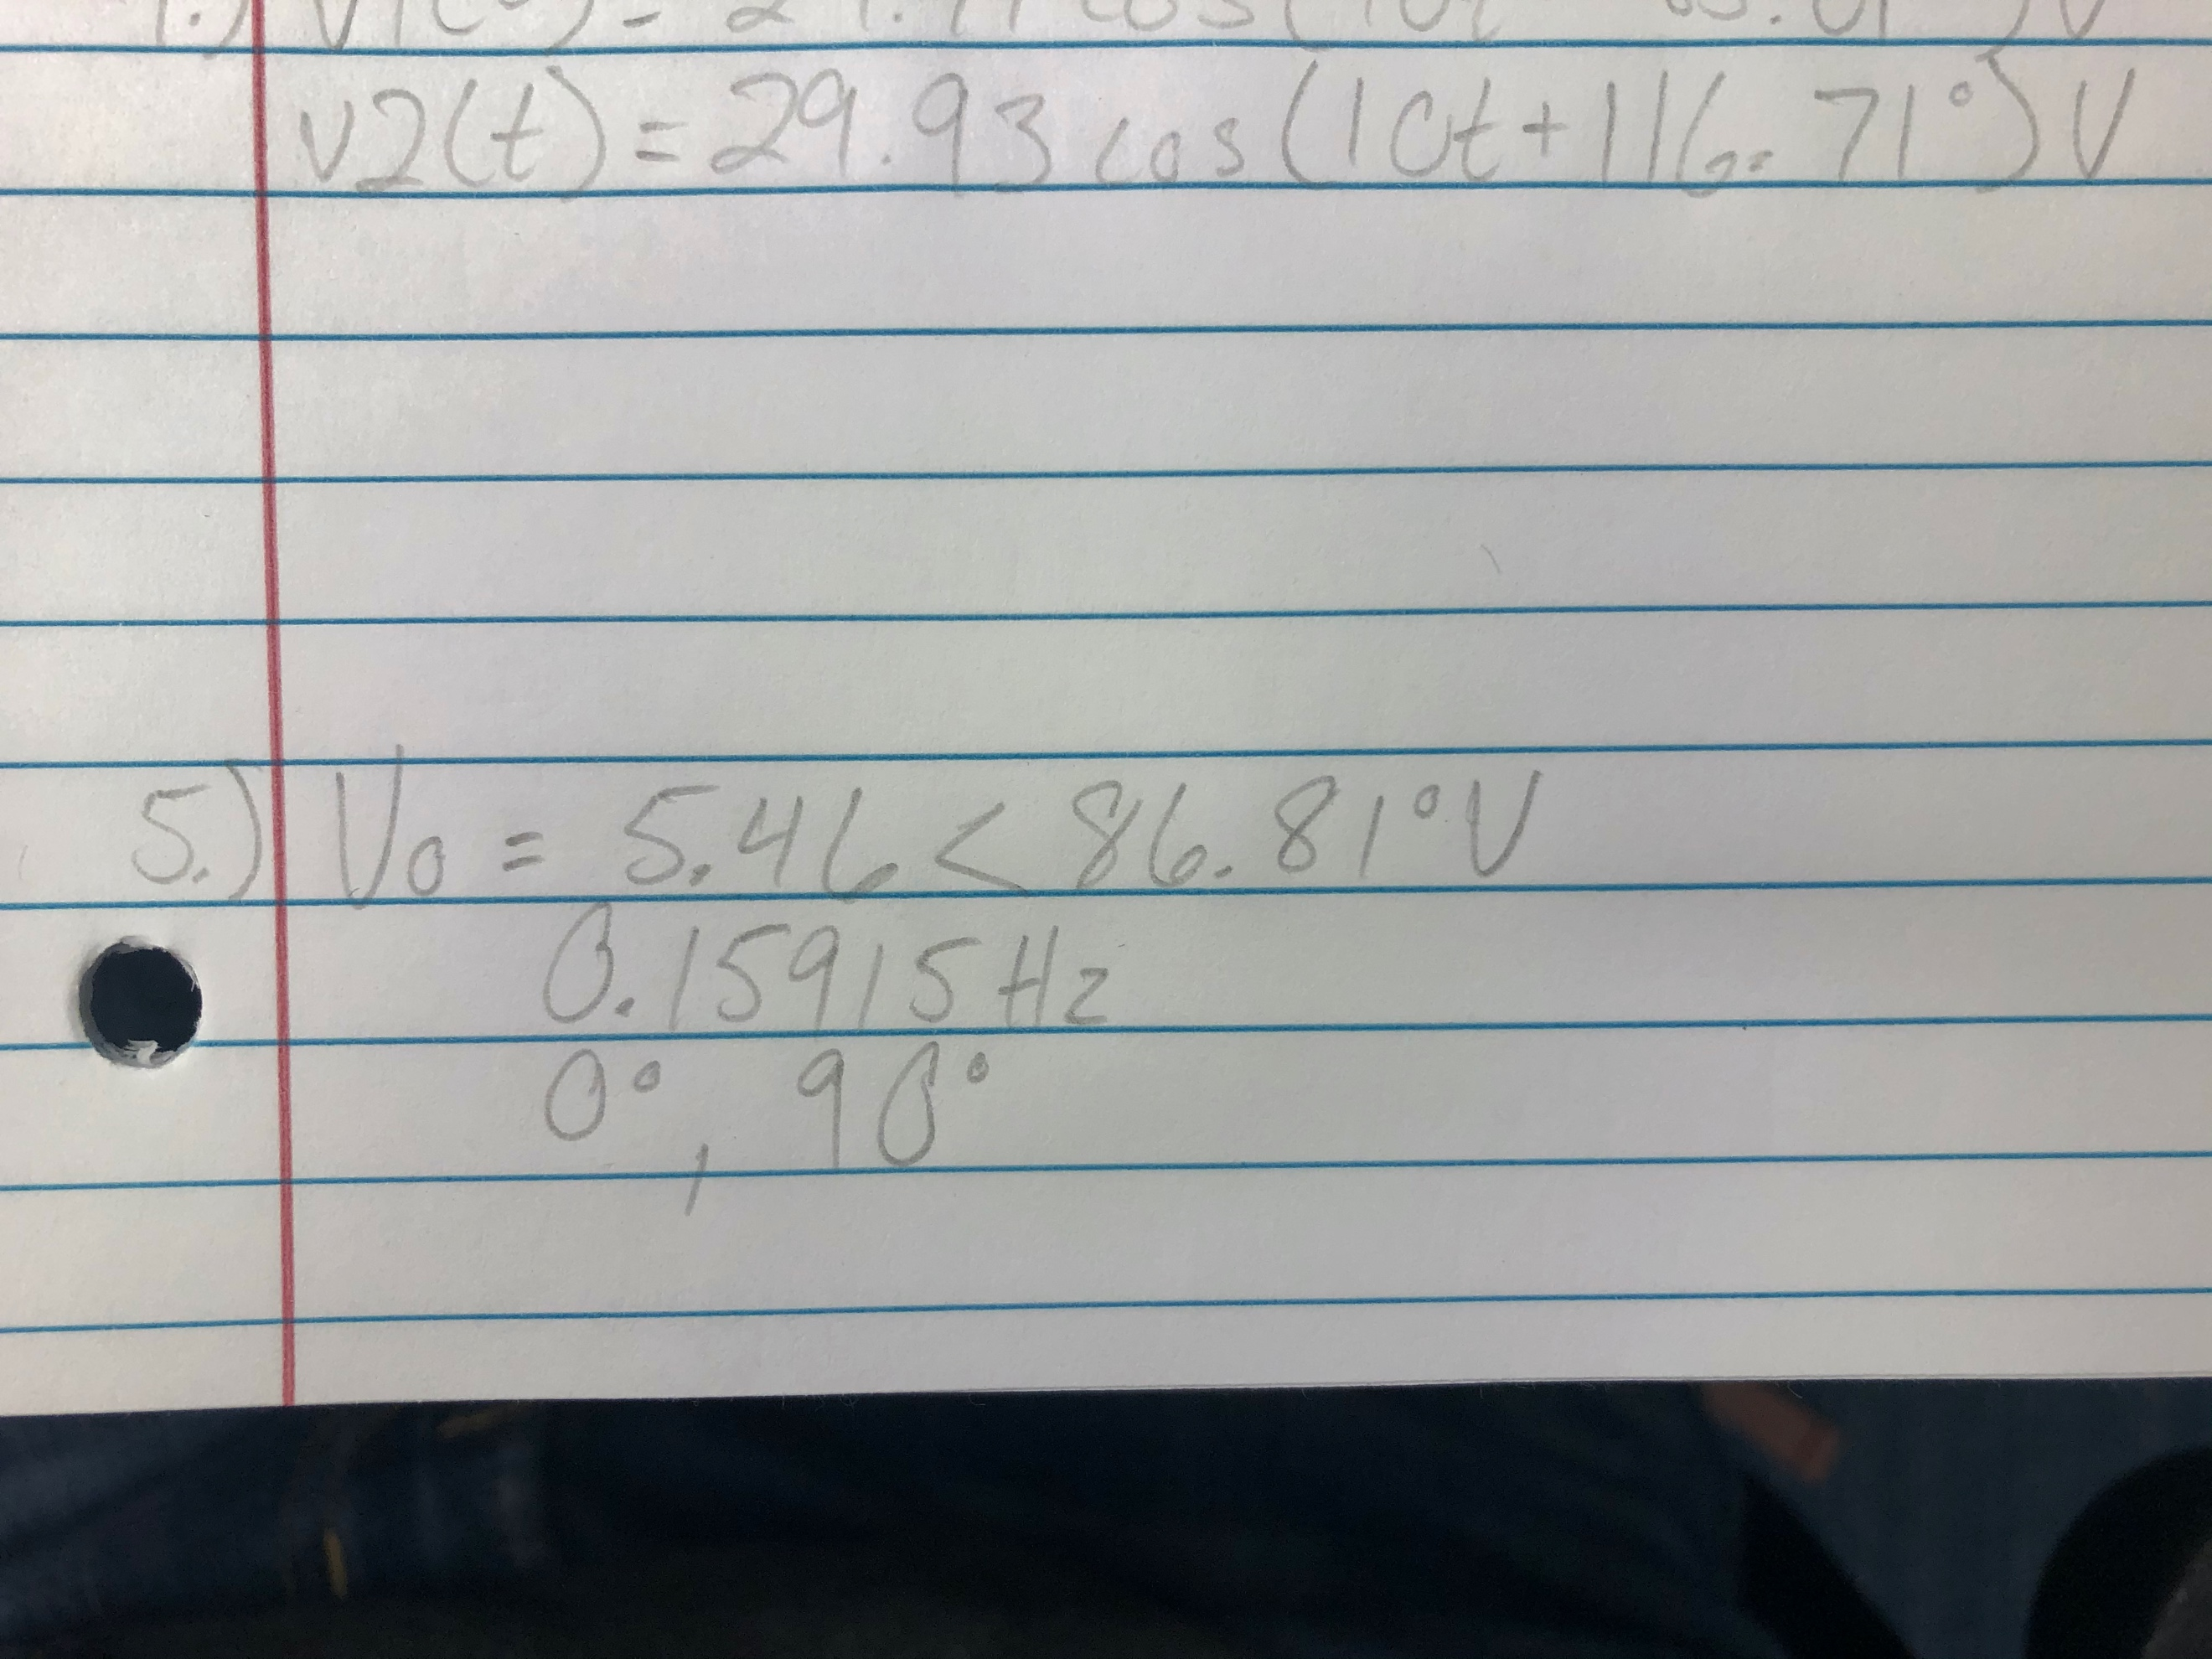 v2(t) = 29.93 cos(10t + 116.71°) V
5.) Vo = 5.46 < 86.81° V
0.15915 Hz
0°, 90°